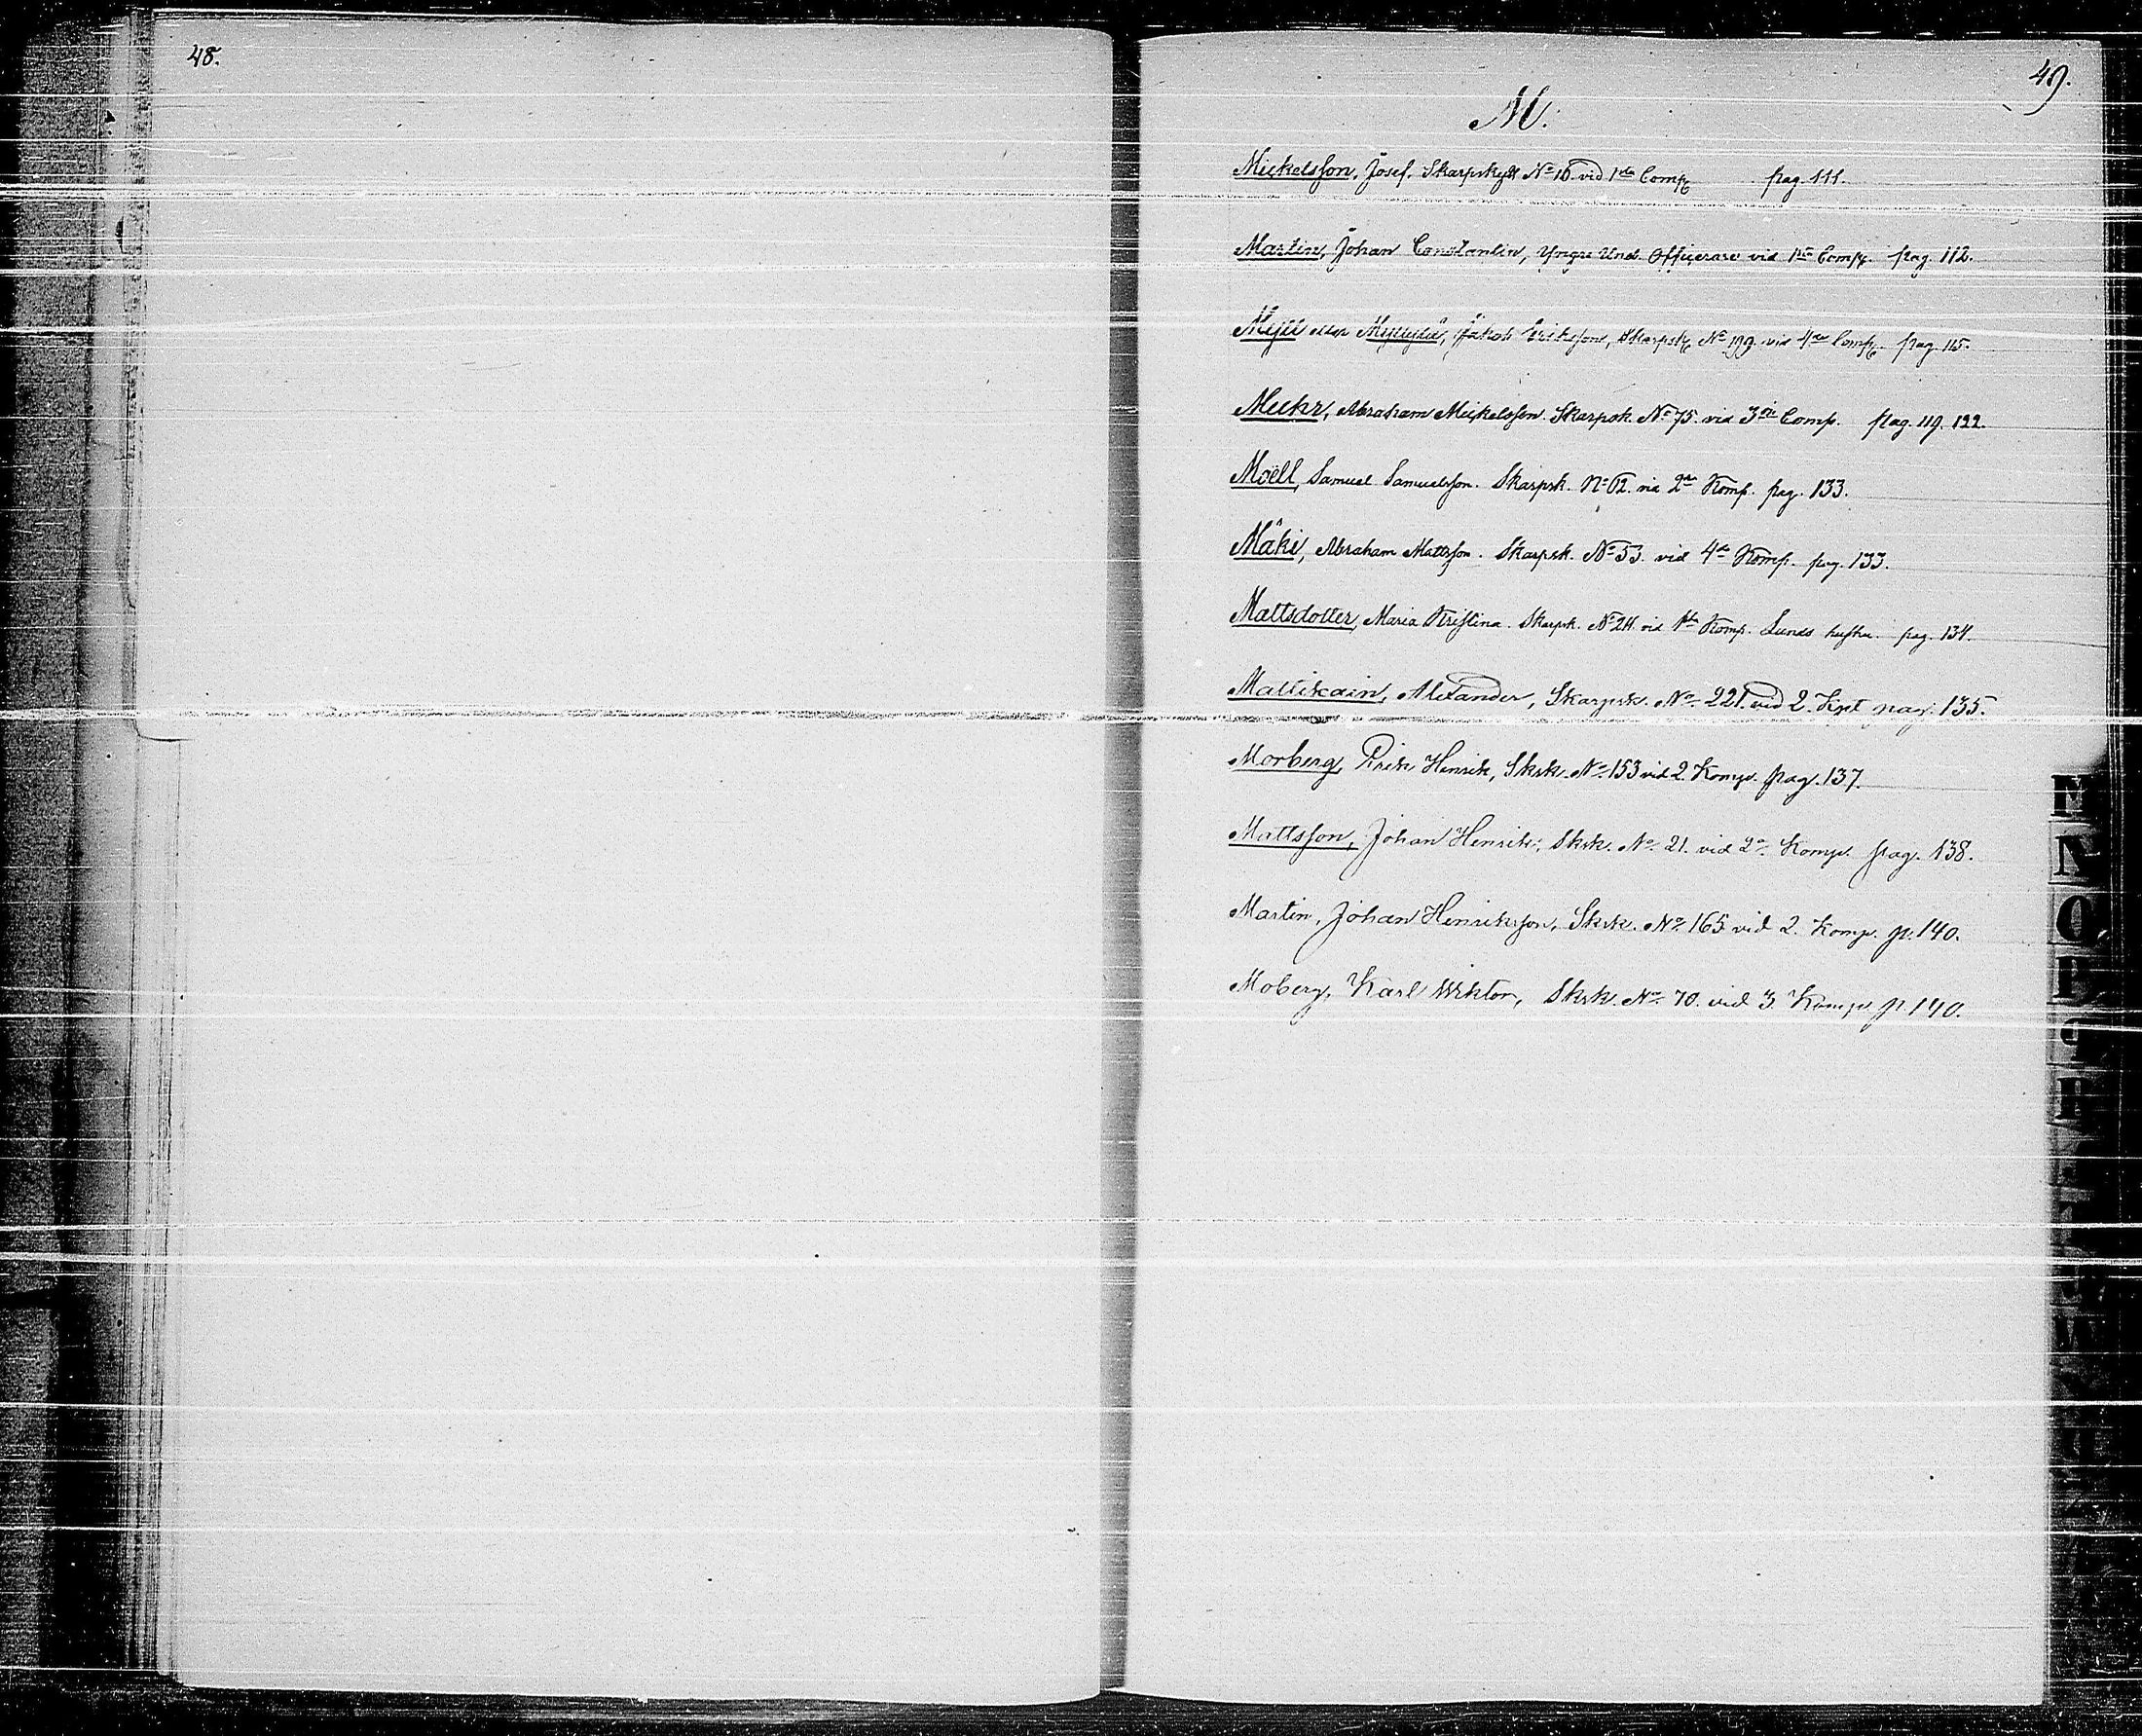 48.
49.
M.
Mickelsson, Josef. Skarpskytt No 16 vid 1sta Comp pag. 111.
Martin, Johan Constantin, Yngre Und. Officerare vid 1sta Comp. pag. 112.
eller Jakob Eriksson, Skarpsk No 199 vid 4de Comp. pag. 115.
Abraham Mickelsson. Skarpsk. No 75. vid 3die Comp. pag. 119. 122.
Moëll, Samuel Samuelsson. Skarpsk. No 62. vid 2dra Komp. pag. 133.
Mäki, Abraham Mattsson. Skarpsk. No 53. vid 4de Komp. pag. 133.
Mattsdotter, Maria Kristina. Skarpsk. No 24 vid 1sta Komp. Lunds hustru. pag. 134.
Mattikain, Alexander, Skarpsk. No 221 vid 2. Kpt pag. 135.
Morberg, Henrik, Skrk. No 153 vid 2. Komp. pag. 137.
Mattsson, Johan Henrik, Skrk. No 21. vid 2a Komp. pag. 138.
Martin, Johan Henriksson, Skrk. No 165 vid 2. Komp. p. 140.
Moberg, Karl Wiktor, Skrk. No 70. vid 3. Komp p. 140.
M
N
O
P
Q
R